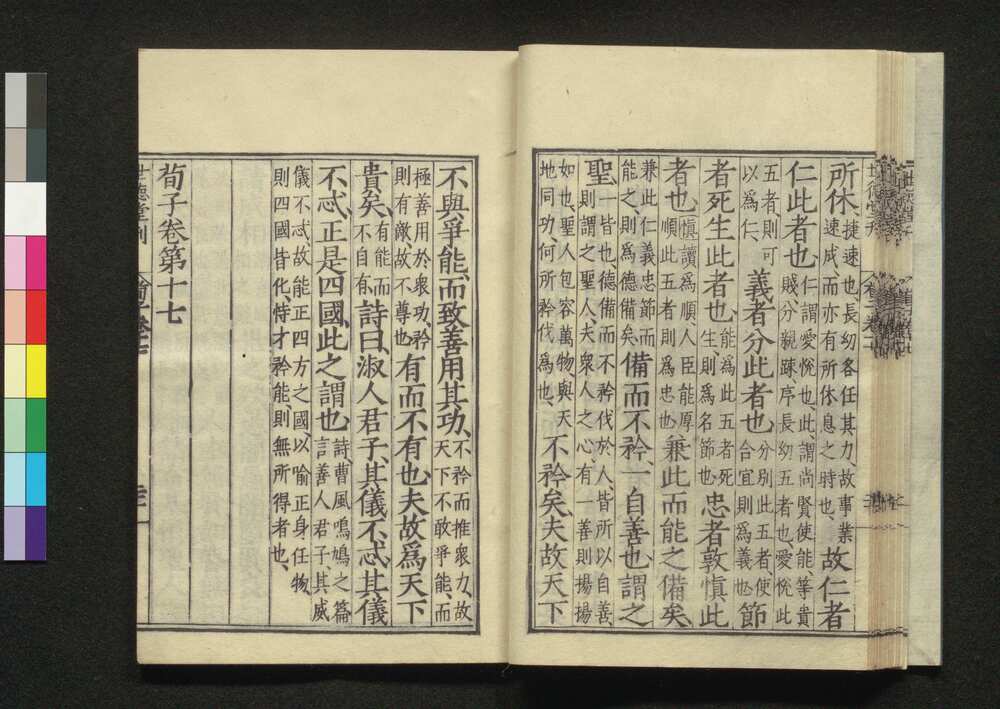 所休、捷速也、長幼各任其力、故事業
速成、而亦有所休息之時也、故仁者
仁此者也仁謂愛悅也、此、謂尚賢使能、等貴
賤、分親疎、序長幼五者也、愛悅此
五者、則可
以爲仁、義者分此者也分別此五者、使
合宜則爲義也節
者死生此者也能爲此五者死
生、則爲名節也忠者敦慎此
者也慎讀爲順、人臣能厚
順此五者、則爲忠也兼此而能之備矣
兼此仁義忠節而
能之、則爲德備矣備而不矜、一自善也、謂之
聖、一皆也、德備而不矜伐於人、皆所以自善、
則謂之聖人、夫衆人之心、有一善則揚揚
如也、聖人包容萬物、與天
地同功、何所矜伐爲也、不矜矣、夫故天下
不與爭能、而致善用其功、不矜而推衆力、故
天下不敢爭能、而
極善用於衆功、矜
則有敵、故不尊也有而不有也、夫故爲天下
貴矣、有能而
不自有詩曰、淑人君子、其儀不忒、其儀
不忒、正是四國、此之謂也詩、曹風鳲鳩之篇
言善人君子、其威
儀不忒、故能正四方之國、以喻正身任物、
則四國皆化、恃才矜能、則無所得者也、
荀子卷第十七
世德堂刊